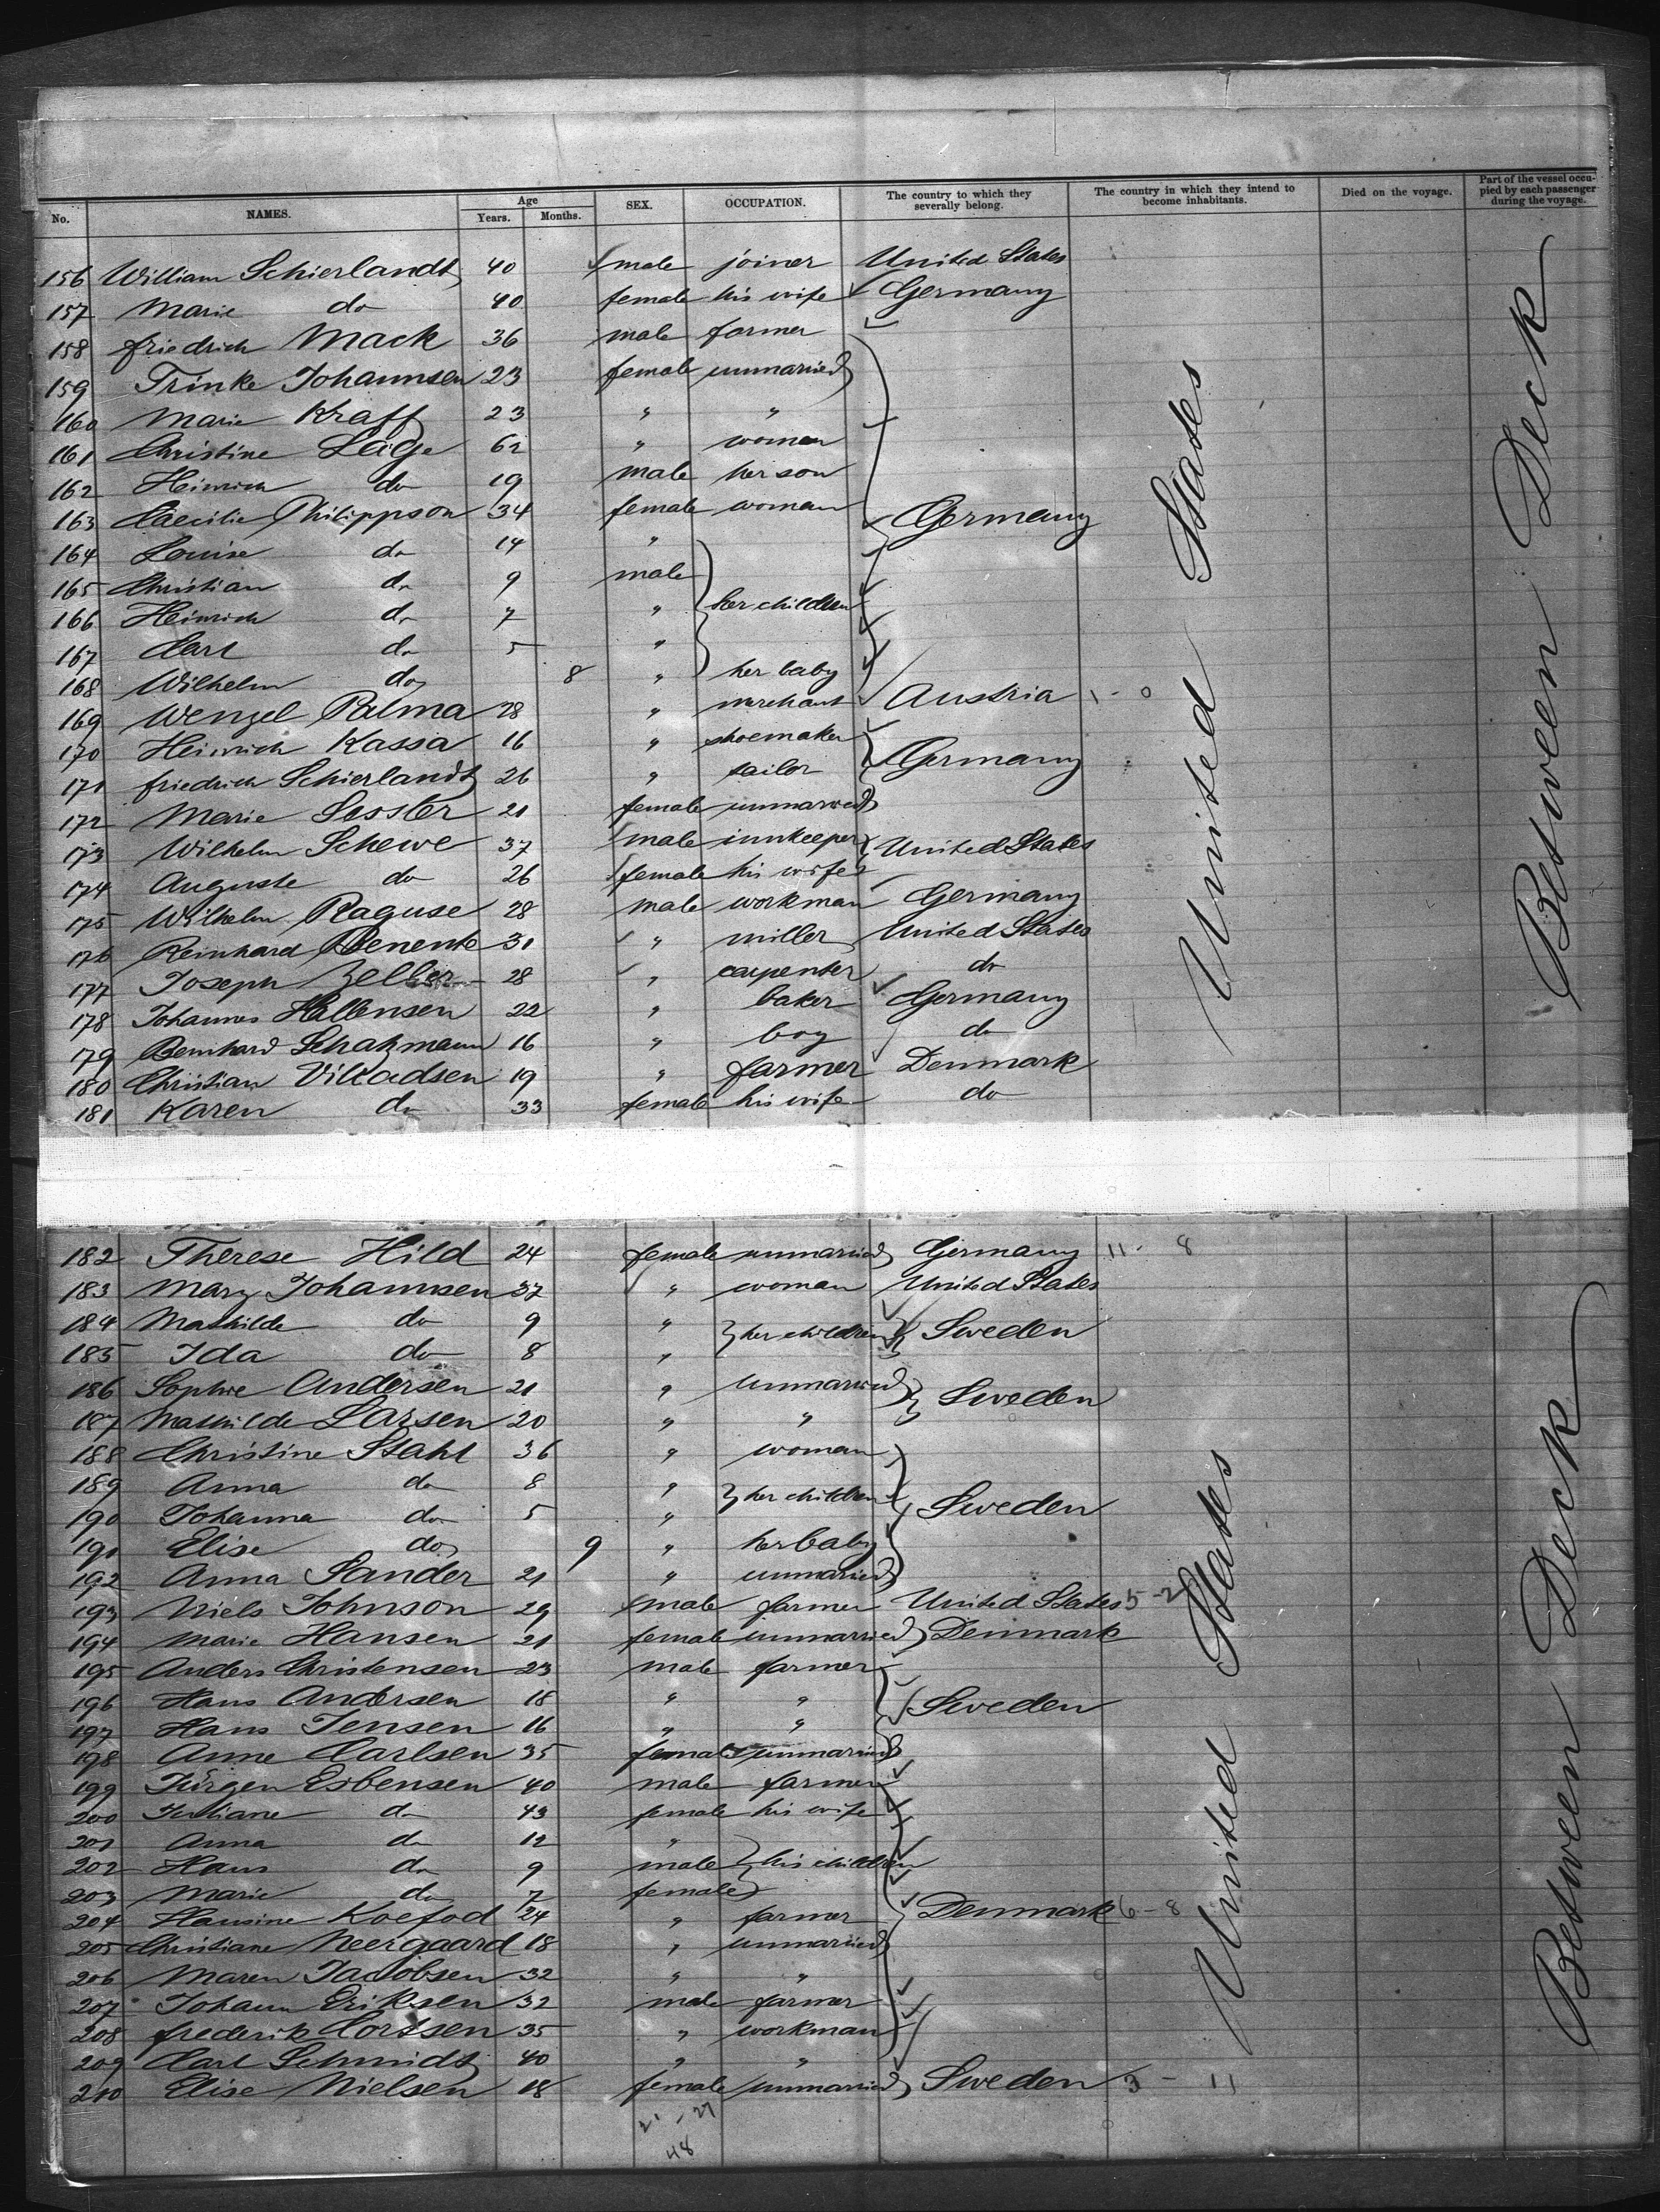 No. NAMES. Age Years. Months. SEX. OCCUPATION. The country to which they severally belong. The country in which they intend to become inhabitants. Died on the voyage. Part of the vessel occupied by each passenger during the voyage.
156 William Schierlandt 40 male joiner United States
157 Marie do 40 female his wife Germany
158 friedrich Mack 36 male farmer
159 Trinke Johannsen 23 female unmarried
160 Marie Kraff 23 " "
161 Christine Läge 62 " woman
162 Heinrich do 19 male her son
163 Caecilie Philippson 34 female woman Germany
164 Louise do 14 "
165 Christian do 9 male
166 Heinrich do 7 " her children
167 Carl do 5 "
168 Wilhelm do 8 " her baby
169 Wenzel Palma 28 " merchant Austria 1 - 0
170 Heinrich Kassa 16 " shoemaker
171 friedrich Schierlandt 26 " sailor Germany
172 Marie Sessler 21 female unmarried
173 Wilhelm Schewe 37 male innkeeper United States
174 Auguste do 26 female his wife
175 Wilhelm Raguse 28 male workman Germany
176 Reinhard Benente 31 " miller United States
177 Joseph Zeller 28 " carpenter do
178 Johannes Hallensen 22 " baker Germany
179 Bernhard Schatzmann 16 " boy do
180 Christian Villadsen 19 " farmer Denmark
181 Karen do 33 female his wife do
United States
Between Deck
182 Therese Hild 24 female unmarried Germany 11 - 8
183 Mary Johannsen 37 " woman United States
184 Mathilde do 9 " her children Sweden
185 Ida do 8 "
186 Sophie Andersen 21 " unmarried Sweden
187 Mathilde Larsen 20 " "
188 Christine Stahl 36 " woman
189 Anna do 8 " her children
190 Johanna do 5 " Sweden
191 Elise do 9 " her baby
192 Anna Sander 21 " unmarried
193 Niels Johnson 29 male farmer United States 5 - 2
194 Marie Hansen 21 female unmarried Denmark
195 Anders Christensen 23 male farmer
196 Hans Andersen 18 " " Sweden
197 Hans Jensen 16 " "
198 Anne Carlsen 35 female unmarried
199 Jürgen Esbensen 40 male farmer
200 Juliane do 43 female his wife
201 Anna do 12 "
202 Hans do 9 male his children
203 Marie do 7 female
204 Hansine Koefod 24 " farmer Denmark 6 - 8
205 Christiane Neergaard 18 " unmarried
206 Maren Jacobsen 32 " "
207 Johann Eriksen 32 male farmer
208 frederik Corssen 35 " workman
209 Carl Schmidt 40 " "
210 Elise Nielsen 18 female unmarried Sweden 3 - 11
United States
Between Deck
21 - 27
48